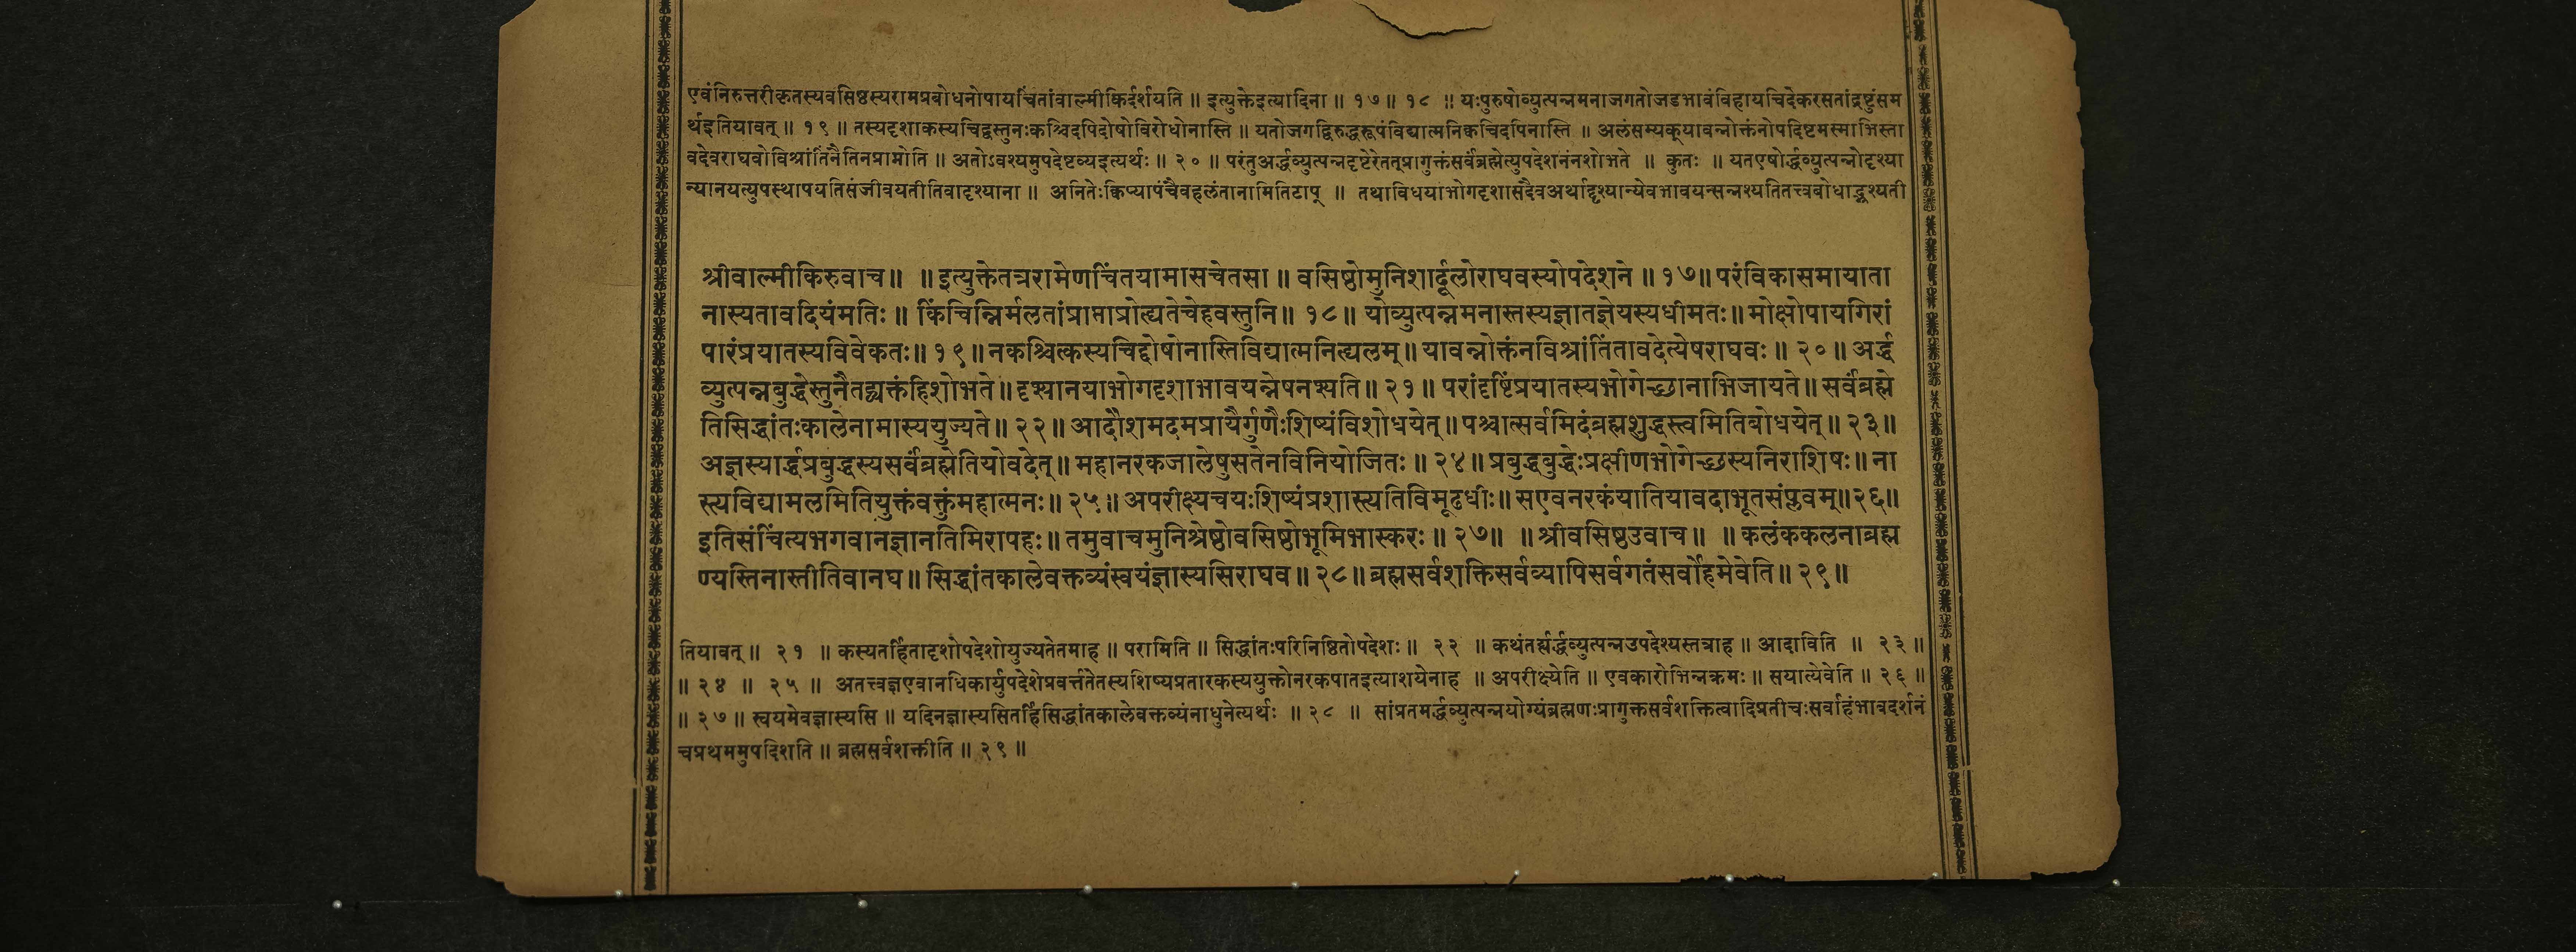 एवंनिरुत्तरीकृतस्यवसिष्ठस्यरामप्रबोधनोपायचिंतांवाल्मीकिर्दर्शयति ॥ इत्युक्तेइत्यादिना ॥ १७ ॥ १८ ॥ यःपुरुषोव्युत्पन्नमनाजगतोजडभावंविहायचिदेकरसतांद्रष्टुंसम
र्थइतियावत् ॥ १९ ॥ तस्यदृशाकस्यचिद्वस्तुनःकश्चिदपिदोषोविरोधोनास्ति ॥ यतोजगद्विरुद्धरूपंविद्यात्मनिक्वचिदपिनास्ति ॥ अलंसम्यक्‌यावन्नोक्तंनोपदिष्टमस्माभिस्ता
वदेवराघवोविश्रांतिंनैतिनप्राप्नोति ॥ अतोऽवश्यमुपदेष्टव्यइत्यर्थः ॥ २० ॥ परंतुअर्द्धव्युत्पन्नदृष्टेरेतत्प्रागुक्तंसर्वंब्रह्मेत्युपदेशनंनशोभते ॥ कुतः ॥ यतएषोर्द्धव्युत्पन्नोदृश्या
न्यानयत्युपस्थापयतिसंजीवयतीतिवादृश्याना ॥ अनितेःक्विप्यापंचैवहलंतानामितिटाप् ॥ तथाविधयाभोगदृशासदैवअर्थादृश्यान्येवभावयन्सन्नश्यतितत्त्वबोधाद्भ्रश्यती
श्रीवाल्मीकिरुवाच ॥ ॥ इत्युक्तेतत्ररामेणचिंतयामासचेतसा ॥ वसिष्ठोमुनिशार्दूलोराघवस्योपदेशने ॥ १७ ॥ परंविकासमायाता
नास्यतावदियंमतिः ॥ किंचिन्निर्मलतांप्राप्ताप्रोत्द्यतेचेहवस्तुनि ॥ १८ ॥ योव्युत्पन्नमनास्तस्यज्ञातज्ञेयस्यधीमतः ॥ मोक्षोपायगिरां
पारंप्रयातस्यविवेकतः ॥ १९ ॥ नकश्चित्कस्यचिद्दोषोनास्तिविद्यात्मनित्यलम् ॥ यावन्नोक्तंनविश्रांतिंतावदेत्येषराघवः ॥ २० ॥ अर्द्ध
व्युत्पन्नबुद्धेस्तुनैतद्व्यक्तंहिशोभते ॥ दृश्यानयाभोगदृशाभावयन्नेषनश्यति ॥ २१ ॥ परांदृष्टिंप्रयातस्यभोगेच्छानाभिजायते ॥ सर्वंब्रह्मे
तिसिद्धांतःकालेनामास्ययुज्यते ॥ २२ ॥ आदौशमदमप्रायैर्गुणैःशिष्यंविशोधयेत् ॥ पश्चात्सर्वमिदंब्रह्मशुद्धस्त्वमितिबोधयेत् ॥ २३ ॥
अज्ञस्यार्द्धप्रबुद्धस्यसर्वंब्रह्मेतियोवदेत् ॥ महानरकजालेषुसतेनविनियोजितः ॥ २४ ॥ प्रबुद्धबुद्धेःप्रक्षीणभोगेच्छस्यनिराशिषः ॥ ना
स्त्यविद्यामलमितियुक्तंवक्तुंमहात्मनः ॥ २५ ॥ अपरीक्ष्यचयःशिष्यंप्रशास्त्यतिविमूढधीः ॥ सएवनरकंयातियावदाभूतसंप्लवम् ॥ २६ ॥
इतिसंचिंत्यभगवानज्ञानतिमिरापहः ॥ तमुवाचमुनिश्रेष्ठोवसिष्ठोभूमिभास्करः ॥ २७ ॥ ॥ श्रीवसिष्ठउवाच ॥ ॥ कलंककलनाब्रह्म
ण्यस्तिनास्तीतिवानघ ॥ सिद्धांतकालेवक्तव्यंस्वयंज्ञास्यसिराघव ॥ २८ ॥ ब्रह्मसर्वशक्तिसर्वव्यापिसर्वगतंसर्वोहमेवेति ॥ २९ ॥
तियावत् ॥ २१ ॥ कस्यतर्हितादृशोपदेशोयुज्यतेतमाह ॥ परामिति ॥ सिद्धांतःपरिनिष्ठितोपदेशः ॥ २२ ॥ कथंतर्ह्यर्द्धव्युत्पन्नउपदेश्यस्तत्राह ॥ आदाविति ॥ २३ ॥
॥ २४ ॥ २५ ॥ अतत्त्वज्ञएवानधिकार्युपदेशेप्रवर्त्ततेतस्यशिष्यप्रतारकस्ययुक्तोनरकपातइत्याशयेनाह ॥ अपरीक्ष्येति ॥ एवकारोभिन्नक्रमः ॥ सयात्येवेति ॥ २६ ॥
॥ २७ ॥ स्वयमेवज्ञास्यसि ॥ यदिनज्ञास्यसितर्हिसिद्धांतकालेवक्तव्यंनाधुनेत्यर्थः ॥ २८ ॥ सांप्रतमर्द्धव्युत्पन्नयोग्यंब्रह्मणःप्रागुक्तसर्वशक्तित्वादिप्रतीचःसर्वाहंभावदर्शनं
चप्रथममुपदिशति ॥ ब्रह्मसर्वशक्तीति ॥ २९ ॥